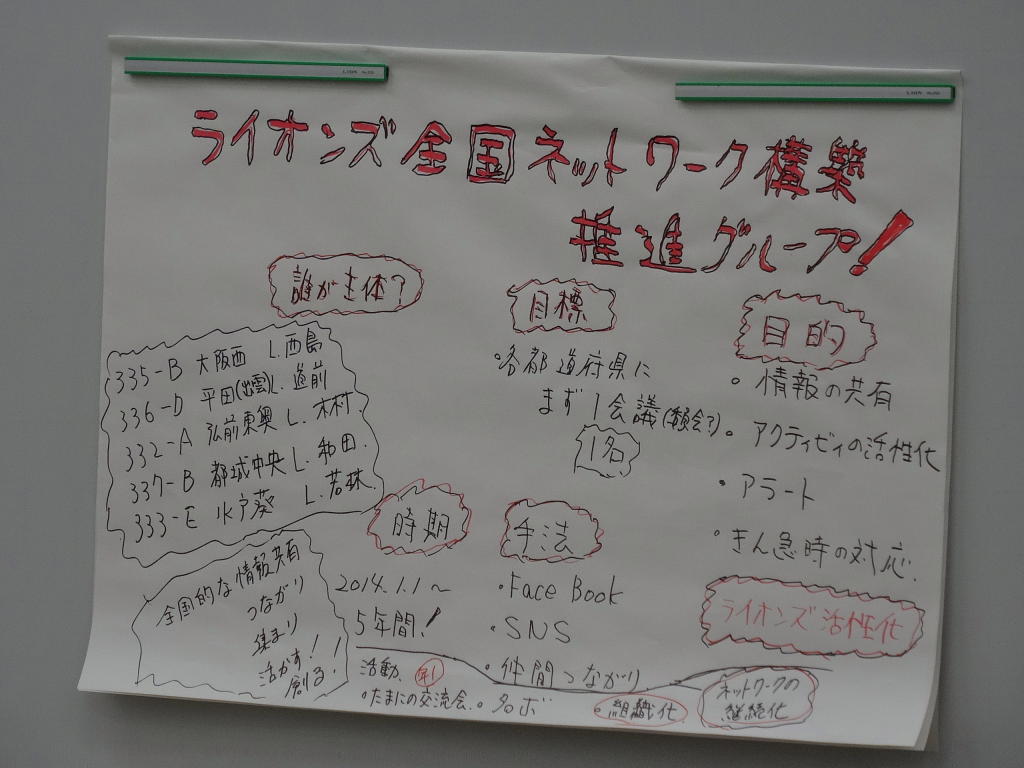 ライオンズ全国ネットワーク構築
推進グループ!
誰が主体?
335-B 大阪西 L.西島
336-D 平田(出雲)L.道前
332-A 弘前東奥 L.木村
337-B 都城中央 L.和田.
333-E 水戸葵 L.若林
全国的な情報共有
つながり
集まり
活かす!
創る!
目標
・各都道府県に
まず1会議(
1名
目的
・情報の共有
・アクティビィの活性化
・アラート
・きん急時の対応.
ライオンズ活性化
時期
2014.1.1〜
5年間!
手法
・Face Book
・SNS
・仲間つながり
・タボ
活動
・たまにの交流会.
・組織化
ネットワークの
継続化